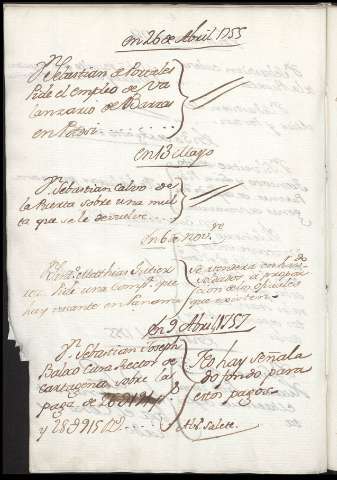 en 26 de Abril 1755
Dn Sebastian de Portales
Pide el empleo de Va
lanzario de Barras
en Potosi
en 13 Mayo
Dn Sebastian Calvo de
la Puerta sobre una mul
ta que se le devuelva
en 6 de Novre
Pide una Compa que
hay vacante en Panama
Se atendera en
soldados, a propor
cion de los oficiales
que existen
en 9 Abril 1757
Dn Sebastian Joseph
Balao Cura Rector de
Cartagena sobre la
paga de
y 28
No hay señala
do fondo para
estos pagos